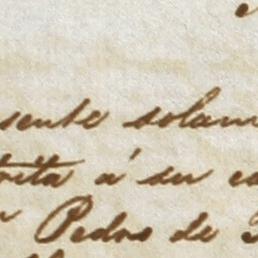 sente solam
rita á su ca
Pedro de